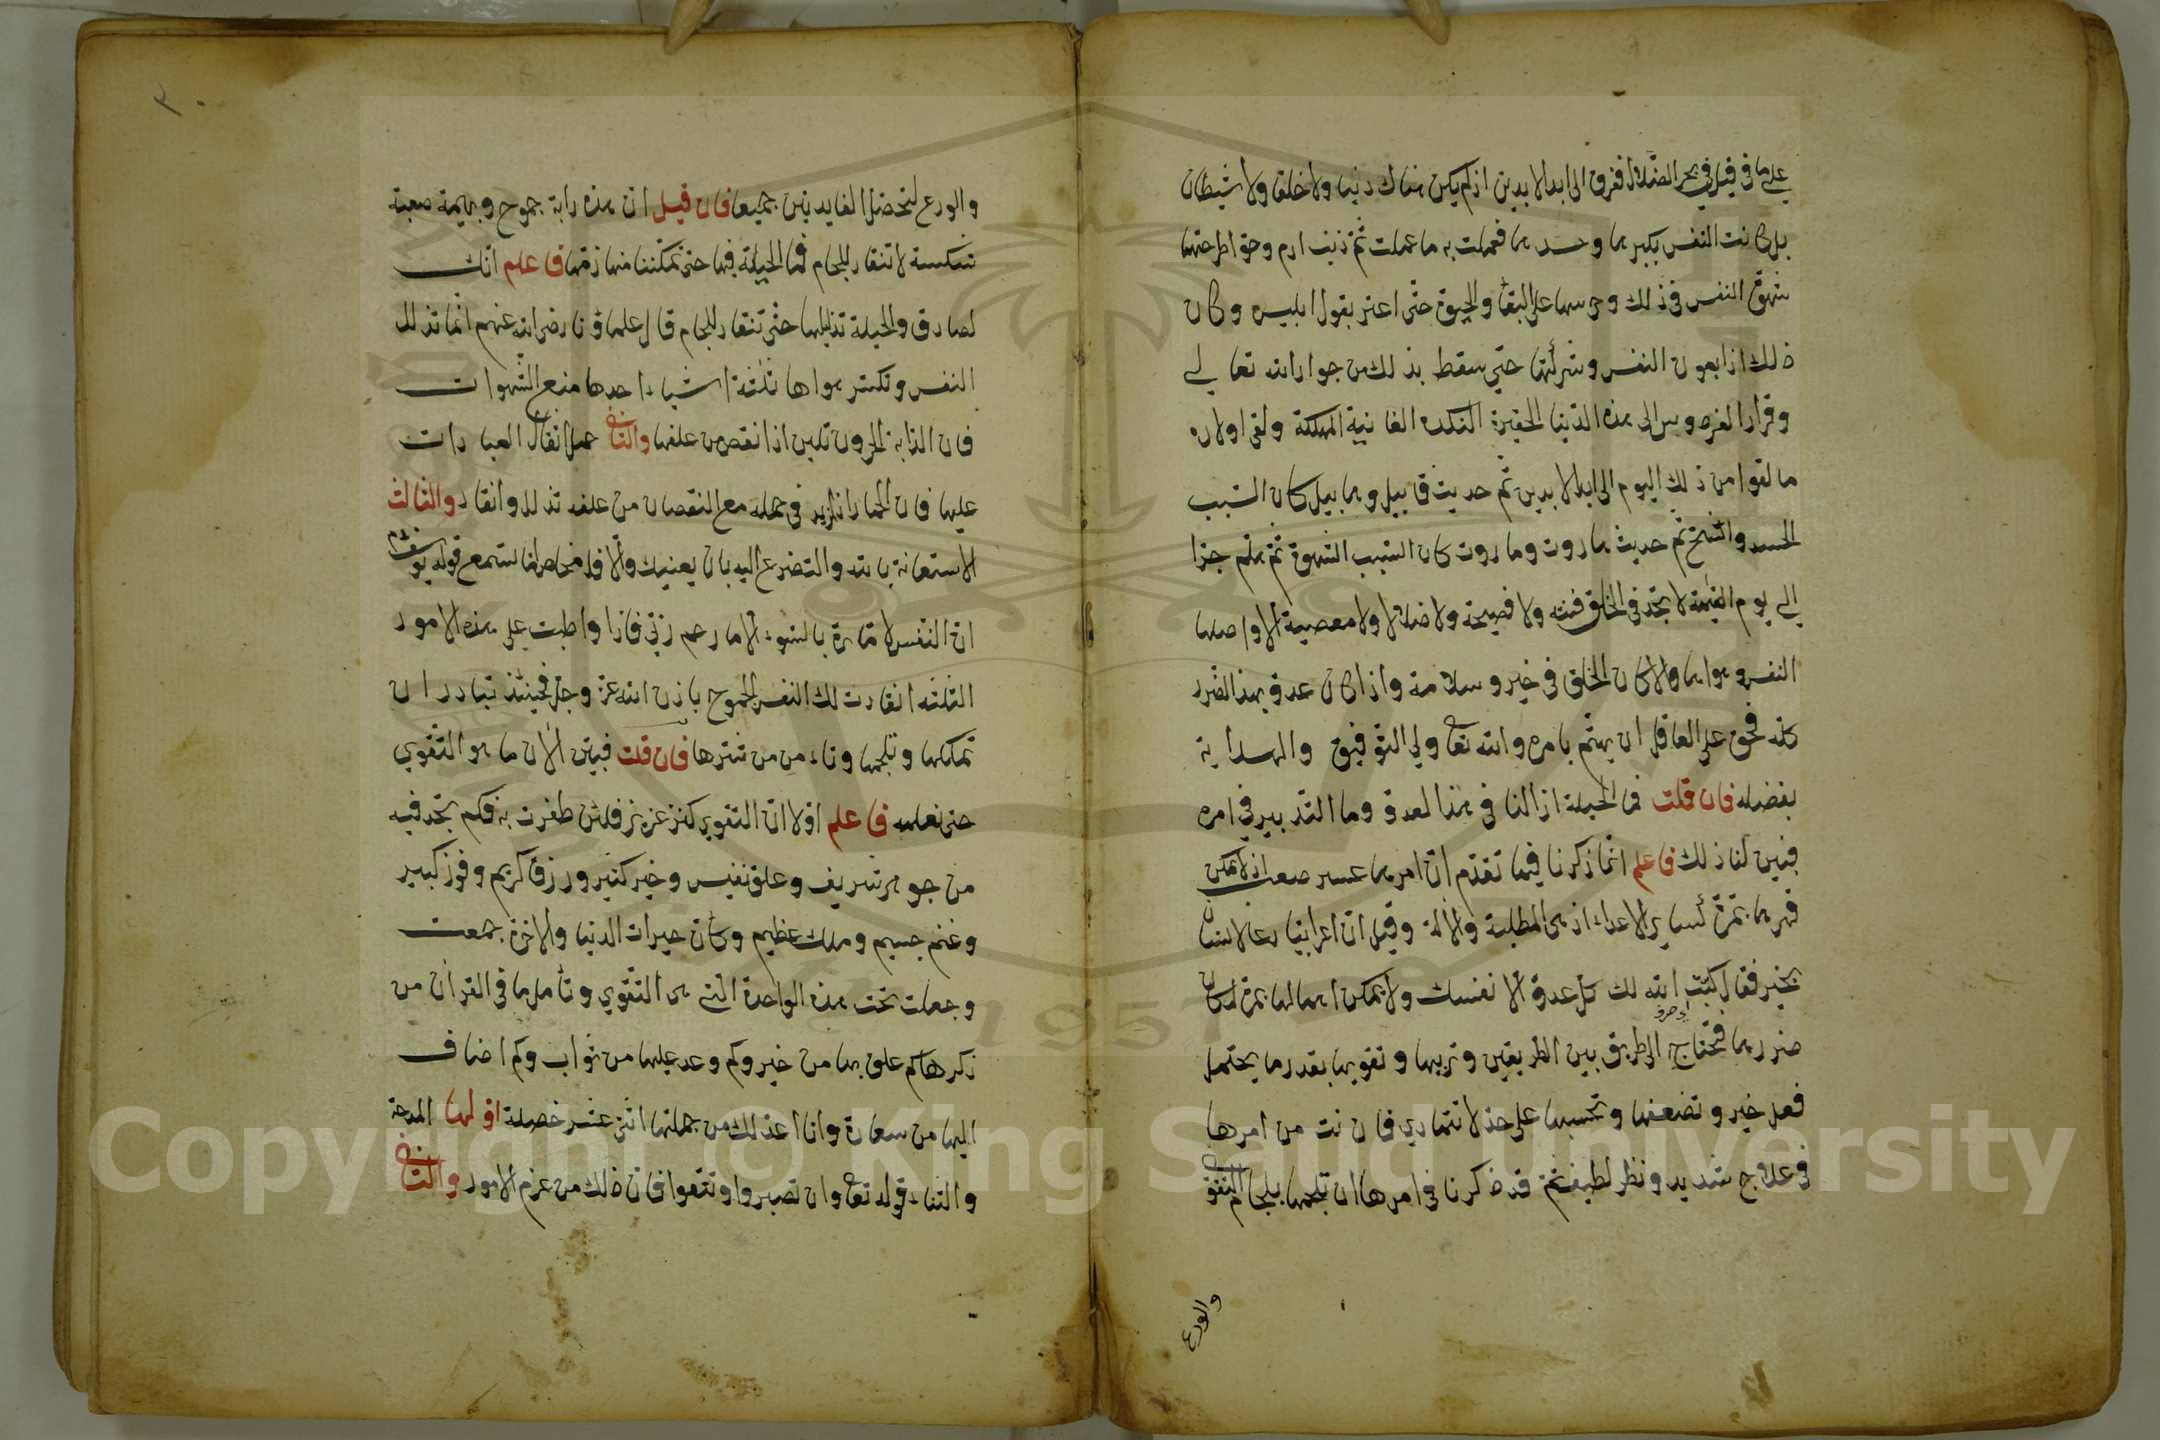 على ما قيل في بحر الضلال فغرق الى ابد الابدين اذ لم يكن هناك دنيا ولا خلق ولا شيطان
بل كانت النفس بكبرها وحسدها فعملت به ما عملت ثم ذنب ادم وحوا طرحتهما
شهوة النفس في ذلك وحرصهما على البقاء والحيوة حتى اغتر بقول ابليس وكان
ذلك اذا بعون النفس وشركتها حتى سقط بذلك من جوار الله تعالى
وقرار الفردوس الى هذه الدنيا الحقيرة النكدة الفانية المهلكة ولقى اولاده
ما لقوا من ذلك اليوم الى ابد الابدين ثم حديث قابيل وهابيل كان السبب
الحسد والشح ثم حديث هاروت وماروت كان السبب الشهوة ثم هلم جرا
الى يوم القيمة لا تجد في الخلق فتنة ولا فضيحة ولا ضلالا ولا معصية الا واصلها
النفس وهواها والا كان الخلق في خير وسلامة واذا كان عدو بهذا الضرر
كله فحق على العاقل ان يهتم بامره والله تعالى ولي التوفيق والهداية
بفضله فان قلت فما الحيلة اذا لنا في هذا العدو وما التدبير في امره
فبين لنا ذلك فاعلم انما ذكرنا فيما تقدم ان امرها عسر صعب اذ لا يمكن
قهرها بمرة كسائر الاعداء اذ هى المطية والالة وقيل ان اعرابيا دعا لانسان
بخير فقال كبت الله لك كل عدو الا نفسك ولا يمكن اهمالها بمرة لمكان
ضررها فتحتاج الى طريق بين الطريقين وتربيها وتقويها بقدر ما يحتمل
فعل خير وتضعفها وتحبسها على حد لا تتمادى فانت من امرها
في علاج شديد ونظر لطيف ثم قد ذكرنا في امرها ان تلجمها بلجام التقوى
والورع
٣٠
والورع لتحصل الفايدتين جميعا فان قيل ان هذه دابة جموح وبهيمة صعبة
شكسة لا تنقاد للجام فما الحيلة فيها حتى تمكننا منها زمها فاعلم انك
لصادق والحيلة تذليلها حتى تنقاد للجام قال علماؤنا رضى الله عنهم انما تذلل
النفس وتكسر هواها ثلثة اشياء احدها منع الشهوات
فان الدابة الحرون تلين اذا نقص من علفها والثاني حمل اثقال العبادات
عليها فان الحمار اذا زيد في حمله مع النقصان من علفه تذلل وانقاد والثالث
الاستعانة بالله والتضرع اليه بان يعينك والا فلا مخلص اما تسمع قوله يوسف
ان النفس لامارة بالسوء الا ما رحم ربي فاذا واظبت على هذه الامور
الثلثه انقادت لك النفس الجموح باذن الله عز وجل فحينئذ تبادر ان
تملكها وتلجمها وتاءمن من شرها فان قلت فبين الان ما هو التقوى
حتى نعلمه فاعلم اولا ان التقوى كنز عزيز فلئن ظفرت به فكم تجد فيه
من جوهر شريف وعلق نفيس وخير كثير ورزق كريم وفوز كبير
وغنم جسيم وملك عظيم وكأن خيرات الدنيا والاخرة جمعت
وجعلت تحت هذه الواحدة التي هى التقوى وتأمل ما في القران من
ذكرها كم علق بها من خير وكم وعد عليها من ثواب وكم اضاف
اليها من سعادة وانا اعد لك من جملتها اثنى عشر خصلة اولها المدحة
والثناء قوله تعالى وان تصبروا وتتقوا فان ذلك من عزم الامور والثاني
Copyright © King Saud University
1957